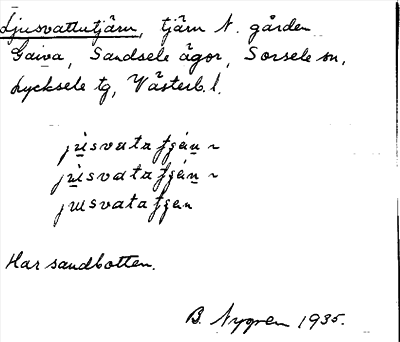 Ljusvattutjärn, tjärn N. gården
Gaiva, Sandsele ägor, Sorsele sn,
Lycksele tg, Västerb. l.
jùsvatatjáṇ ~
jùsvatatjáṇ ~
jusvatatjan
Har sandbotten.
B. Nygren 1935.